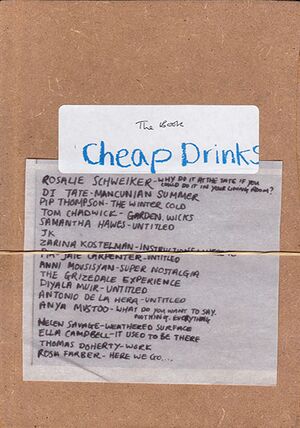 The Book
Cheap Drinks
ROSALIE SCHWEIKER - WHY DO IT AT THE TATE IF YOU
COULD DO IT IN YOUR LIVING ROOM?
DI TATE - MANCUNIAN SUMMER
PIP THOMPSON - THE WINTER COLD
TOM CHADWICK - GARDEN, WICKS
SAMANTHA HAWES - UNTITLED
JK
ZARINA KOSTELMAN -
JADE CARPENTER - UNTITLED
ANNI MOVSISYAN - SUPER NOSTALGIA
THE GRIZEDALE EXPERIENCE
DIYALA MUIR - UNTITLED
ANTONIO DE LA HERA - UNTITLED
ANYA MUSTOO - WHAT DO YOU WANT TO SAY.
NOTHING. EVERYTHING
HELEN SAVAGE - WEATHERED SURFACE
ELLA CAMPBELL - IT USED TO BE THERE
THOMAS DOHERTY - WORK
ROSH FARBER - HERE WE GO....